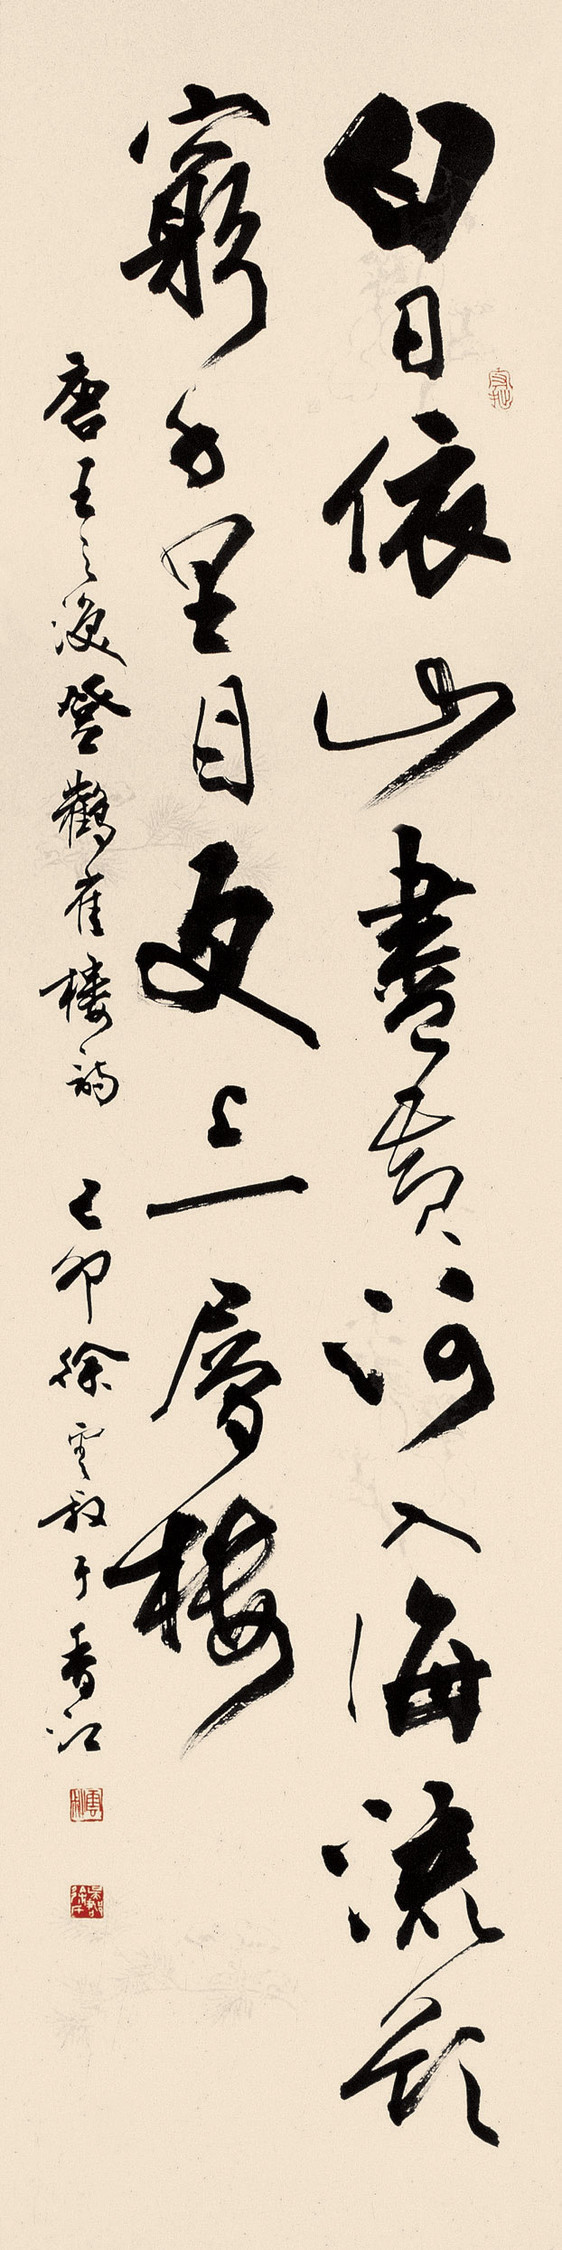 白日依山盡黃河入海流欲
窮千里目更上一層樓
唐王之渙登鸛雀樓詩 己卯徐雲叔于香江